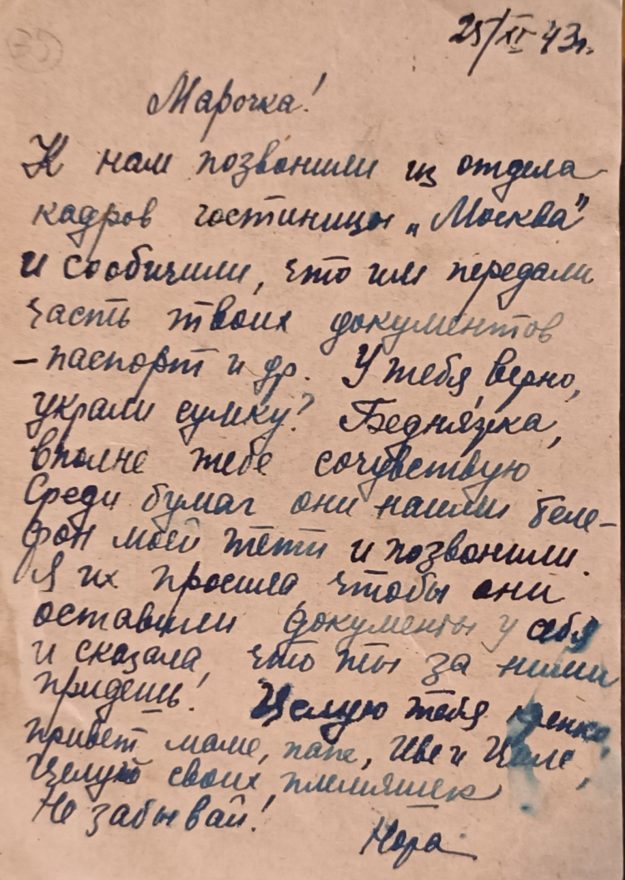 25/XI 43г.
Марочка!
К нам позвонили из отдела
кадров гостиницы „Москва"
и сообичили, что им передали
часть твоих документов
– паспорт и др. У тебя, верно,
украли сумку? Бедняжка,
вполне тебе сочувствую
Среди бумаг они нашли теле-
фон моей тёти и позвонили.
Я их просила чтобы они
оставили документы у себя
и сказала, что ты за ними
придешь! Целую тебя крепко,
привет маме, папе, Иве и Циле,
Целую своих племяшек
Не забывай!
Нора